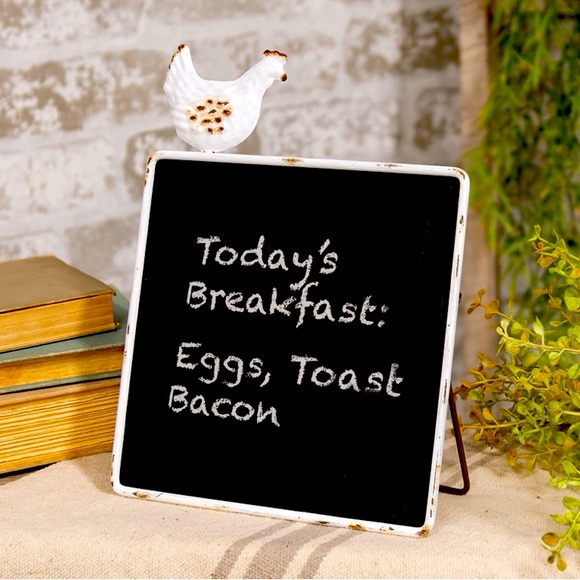 Today's
Breakfast:
Eggs, Toast
Bacon